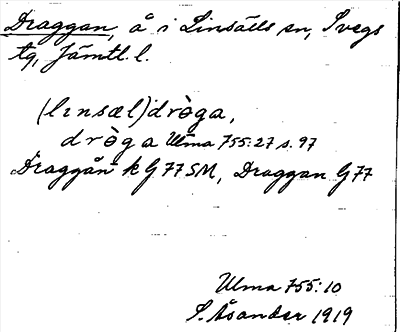 Draggan, å i Linsälls sn, Svegs
tg, Jämtl. l.
(lınsæl)dròga,
dròga Ulma 755:27 s. 97
Draggån k G 77 SM, Draggan G 77
Ulma 755:10
S. Åsander 1919